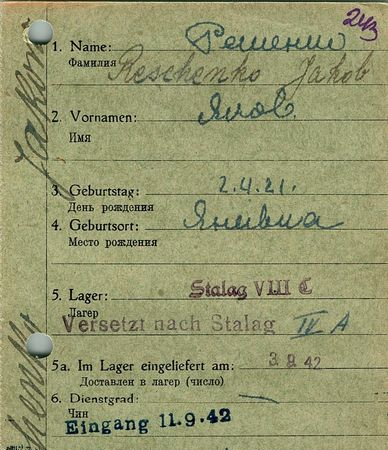 243
1. Name: Решенко
Фамилия
Reschenko Jakob
2. Vornamen: Яков
Имя
3. Geburtstag: 2.4.21.
День рождения
4. Geburtsort:
Место рождения
5. Lager: Stalag VIII C
Лагер
Versetzt nach Stalag IV A
5a. Im Lager eingeliefert am: 3.9.42
Доставлен в лагер (число)
6. Dienstgrad: —
Чин
Eingang 11.9.42